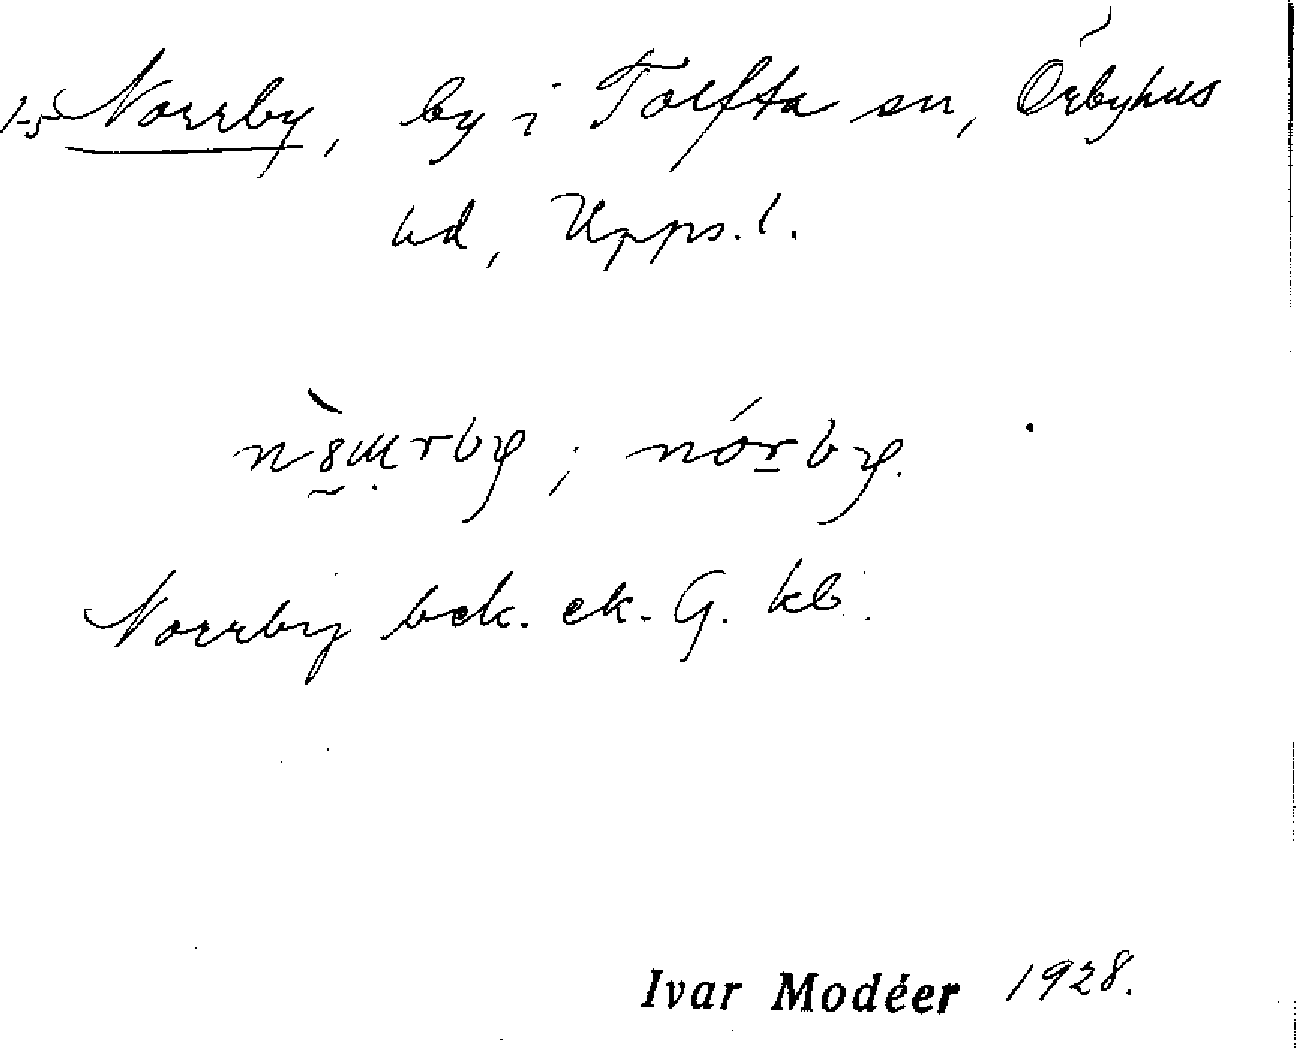 1-5 Norrby, by i Tolfta sn, Örbyhus
hd, Upps. l.
; nórby.
Norrby bek. ek. G. kb.
Ivar Modéer 1928.